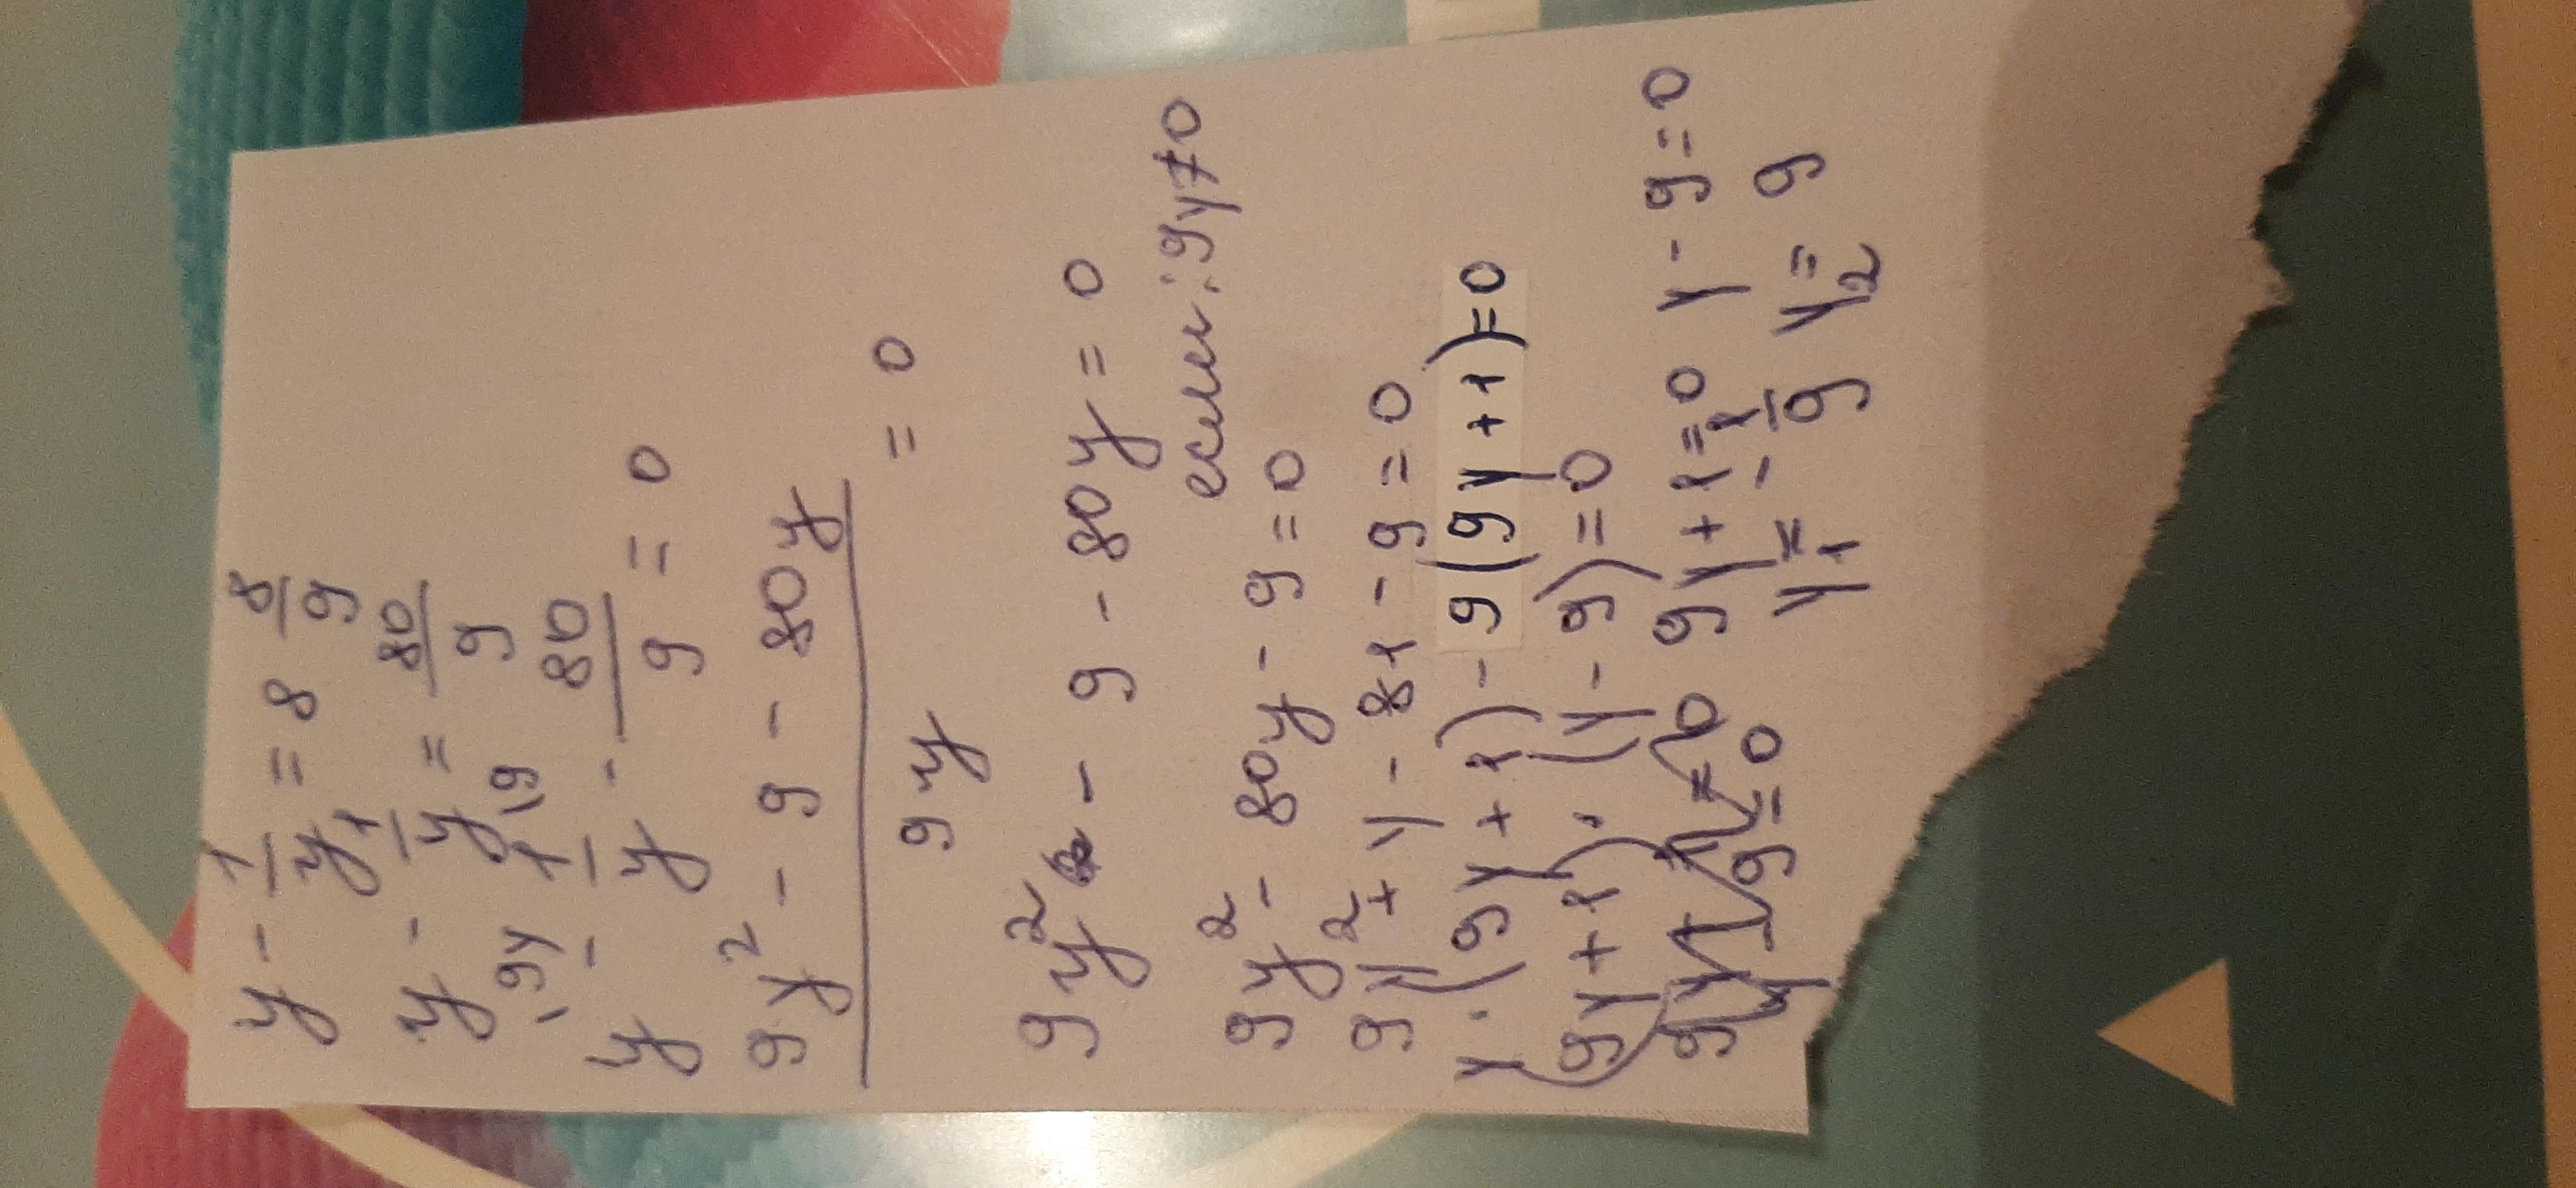 y - 1/y = 8 8/9
y - 1/y = 80/9
y\9y - 1\9/y - 80/9 = 0
9y² - 9 - 80y
9y = 0
9y² - 9 - 80y = 0
если: 9y≠0
9y² - 80y - 9 = 0
9y² + y - 81 - 9 = 0
y·(9y+1) - 9(9y+1)=0
(9y+1)·(y-9)=0
9y+1=0 y-9=0
9=0 y₁=-1/9 y₂=9